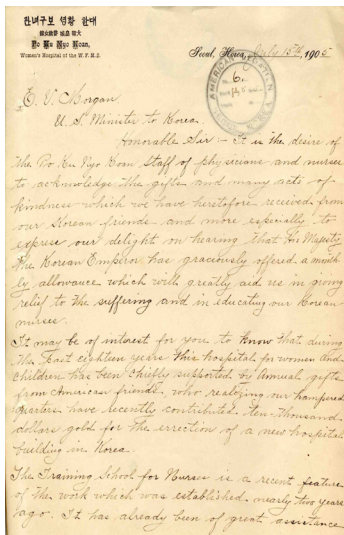 한대 영황 보구녀관
韓大 城皇 館普救女保
Po Ku Nyo Koan,
Women's Hospital of the W. F. M. S.
Seoul, Korea, July 15th 1905
AMERICAN LEGATION
No. 6.
E. V. Morgan,
U. S. Minister to Korea.
Honorable Sir :- It is the desire of
the Po Ku Nyo Koan Staff of physicians and nurses
to acknowledge the gifts and many acts of
kindness which we have heretofore received from
our Korean friends and more especially to
express our delight on hearing that His Majesty
the Korean Emperor has graciously offered a month
ly allowance which will greatly aid us in giving
relief to the suffering and in educating our Korean
nurses.
It may be of interest for you to know that during
the last eighteen years this hospital for women and
children has been chiefly supported by annual gifts
from American friends, who realizing our hampered
quarters, have recently contributed ten thousand
dollars gold for the errection of a new hospital
building in Korea.
The Training School for Nurses is a recent feature
of the work which was established nearly two years
ago. It has already been of great assistance